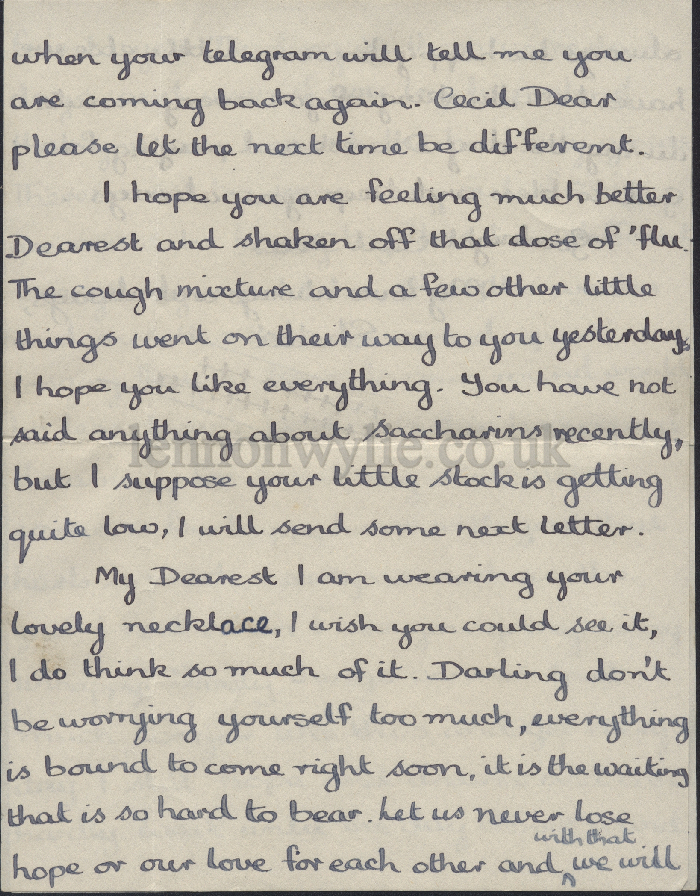 when your telegram will tell me you
are coming back again. Cecil Dear
please let the next time be different.
I hope you are feeling much better
Dearest and shaken off that dose of 'flu.
The cough mixture and a few other little
things went on their way to you yesterday,
I hope you like everything. You have not
said anything about Saccharins recently,
lennonwylie.co.uk
but I suppose your little stock is getting
quite low, I will send some next letter.
My Dearest I am wearing your
lovely necklace, I wish you could see it,
I do think so much of it. Darling don't
be worrying yourself too much, everything
is bound to come right soon, it is the waiting
that is so hard to bear. Let us never lose
with that
hope or our love for each other and ^ we will